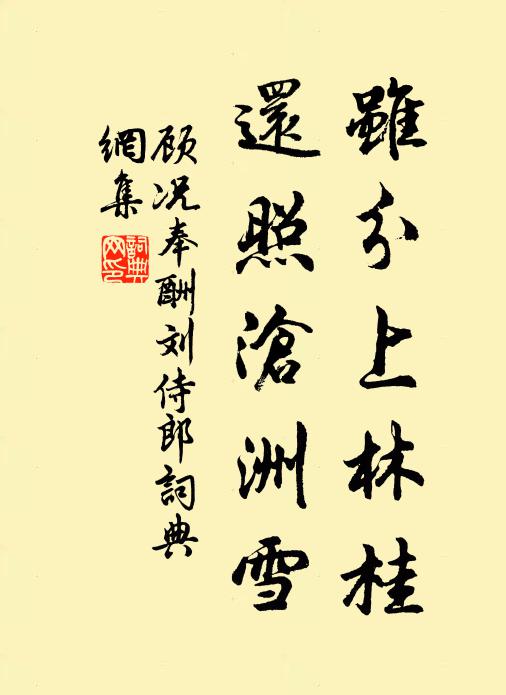 雖分上林桂
還照滄洲雪
顾况奉酬刘侍郎詞典
網集
詞典
网印